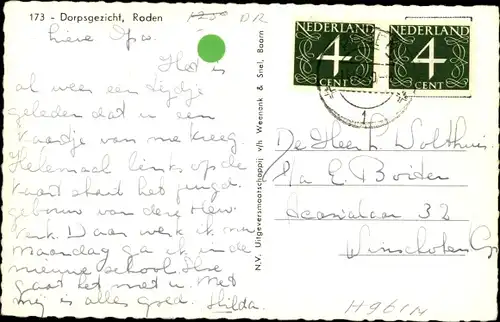 173 - Dorpsgezicht, Roden
1250 DR
Lieve Opa.
Het is
al weer een tijdje
geleden dat u een
kaartje van me kreeg.
Helemaal links op de
kaart staat het jeugd
gebouw van de Herv.
Kerk. Daar werk ik nu
maandag ga ik in de
nieuwe school. Hoe
gaat het met u. Met
mij is alles goed. Hilda.
N.V. Uitgeversmaatschappij v/h Weenenk & Snel, Baarn
NEDERLAND
4
CENT
NEDERLAND
4
CENT
De Heer Wolthuis
p/a E Boiten
Acacialaan 32
Winschoten Gr
H961M